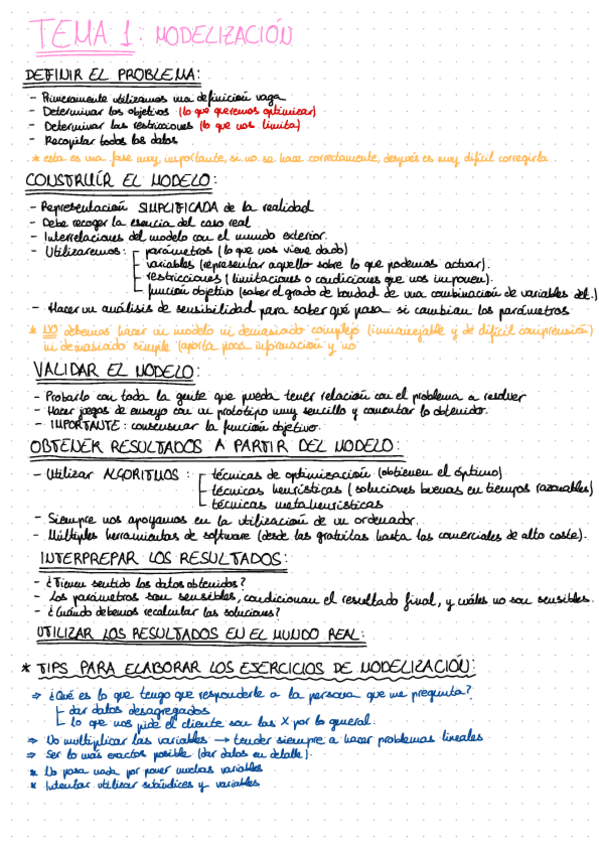 TEMA 1: MODELIZACIÓN
DEFINIR EL PROBLEMA:
- Primeramente utilizamos una definición vaga
- Determinar los objetivos (lo que queremos optimizar)
- Determinar las restricciones (lo que nos limita)
- Recopilar todos los datos
* esta es una fase muy importante, si no se hace correctamente, después es muy difícil corregirla.
CONSTRUIR EL MODELO:
- Representación SIMPLIFICADA de la realidad
- Debe recoger la esencia del caso real
- Interrelaciones del modelo con el mundo exterior.
- Utilizaremos: parámetros (lo que nos viene dado)
variables (representar aquello sobre lo que podemos actuar).
restricciones (limitaciones o condiciones que nos imponen).
función objetivo (saber el grado de bondad de una combinación de variables det.)
- Hacer un análisis de sensibilidad para saber qué pasa si cambian los parámetros
* NO debemos hacer un modelo ni demasiado complejo (inmanejable y de difícil comprensión)
ni demasiado simple (aporta poca información y no
VALIDAR EL MODELO:
- Probarlo con toda la gente que pueda tener relación con el problema a resolver
- Hacer juegos de ensayo con un prototipo muy sencillo y comentar lo obtenido.
- IMPORTANTE: consensuar la función objetivo.
OBTENER RESULTADOS A PARTIR DEL MODELO:
- Utilizar ALGORITMOS: técnicas de optimización (obtienen el óptimo)
técnicas heurísticas (soluciones buenas en tiempos razonables)
técnicas metaheurísticas
- Siempre nos apoyamos en la utilización de un ordenador.
- Múltiples herramientas de software (desde las gratuitas hasta las comerciales de alto coste).
INTERPREPAR LOS RESULTADOS:
- ¿Tienen sentido los datos obtenidos?
- Los parámetros son sensibles, condicionan el resultado final, y cuáles no son sensibles.
- ¿Cuándo debemos recalcular las soluciones?
UTILIZAR LOS RESULTADOS EN EL MUNDO REAL:
* TIPS PARA ELABORAR LOS EJERCICIOS DE MODELIZACIÓN:
⇒ ¿Qué es lo que tengo que responderle a la persona que me pregunta?
dar datos desagregados
lo que nos pide el cliente son las X por lo general.
⇒ No multiplicar las variables → tender siempre a hacer problemas lineales
⇒ Ser lo más exactos posible (dar datos en detalle).
* No pasa nada por poner muchas variables
* Intentar utilizar subíndices y variables